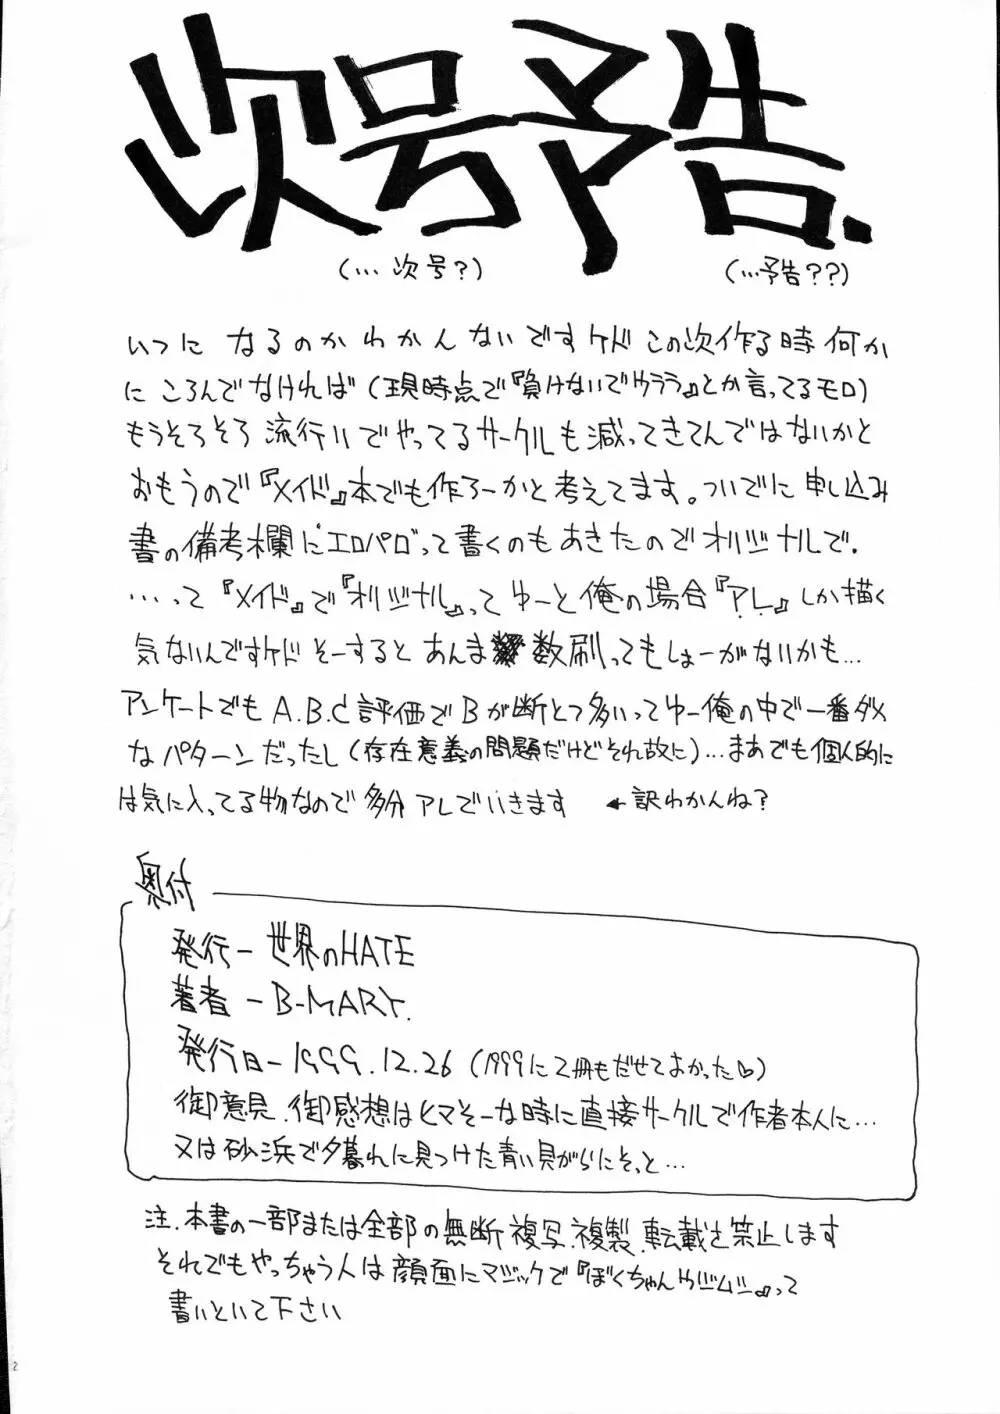 次号予告.
(…次号?)
(…予告??)
いつに なるのか わかんないですケド この次作る時 何か
に ころんでなければ (現時点で『負けないでウララ』とか言ってるモロ)
もうそろそろ 流行りでやってるサークルも減ってきてんではないかと
おもうので『メイド』本でも作ろーかと考えてます。ついでに申し込み
書の備考欄にエロパロって書くのもあきたのでオリジナルで.
…って『メイド』で『オリジナル』ってゆーと俺の場合『アレ』しか描く
気ないんですケド そーすると あんま 数刷ってもしょーがないかも…
アンケートでも A.B.C評価で Bが断とつ多いってゆー俺の中で一番ダメ
なパターンだったし (存在意義の問題だけどそれ故に) …まあでも個人的に
は気に入ってる物なので多分アレでいきます ←訳わかんね?
奥付
発行ー世界のHATE
著者ーB-MARY.
発行日ー1999.12.26 (1999に2冊もだせてよかった♡)
御意見.御感想はヒマそーな時に直接サークルで作者本人に…
又は砂浜で夕暮れに見つけた青い貝がらにそっと…
注.本書の一部または全部の無断複写.複製.転載を禁止します
それでもやっちゃう人は顔面にマジックで『ぼくちゃん って
書いといて下さい
2